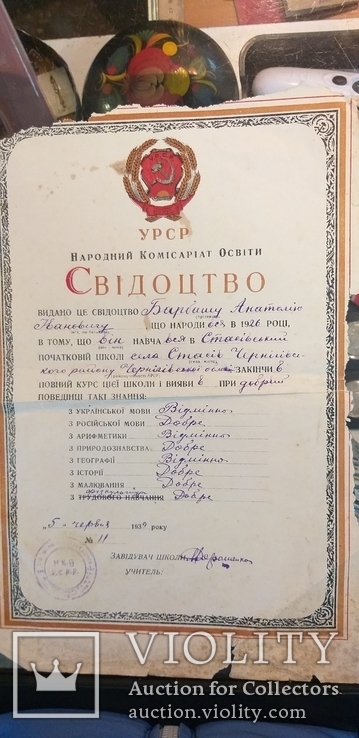 УРСР
НАРОДНИЙ КОМІСАРІАТ ОСВІТИ
СВІДОЦТВО
ВИДАНО ЦЕ СВІДОЦТВО Барбашу Анатолію
Івановичу ЩО НАРОДИвся В 1926 РОЦІ,
В ТОМУ, ЩО він НАВЧАвся В Стасівській
ПОЧАТКОВІЙ ШКОЛІ села Стасів Чернігівсь-
кого району Чернігівської ЗАКІНЧИв
ПОВНИЙ КУРС ЦІЄЇ ШКОЛИ І ВИЯВИв ПРИ добрій
ПОВЕДІНЦІ ТАКІ ЗНАННЯ:
З УКРАЇНСЬКОЇ МОВИ Відмінно
З РОСІЙСЬКОЇ МОВИ Добре
З АРИФМЕТИКИ Відмінно
З ПРИРОДОЗНАВСТВА Добре
З ГЕОГРАФІЇ Відмінно
З ІСТОРІЇ Добре
З МАЛЮВАННЯ Добре
З ТРУДОВОГО НАВЧАННЯ Добре
„5" червня 1939 року
№ 11
ЗАВІДУВАЧ ШКОЛИ
УЧИТЕЛЬ:
VIOLITY
Auction for Collectors
auction.violity.com